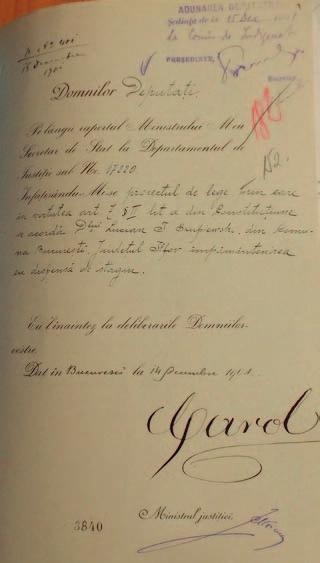 ADUNAREA DEPUTAȚI
Ședința de la 15 Dec.
la Comis. de Indigenat
PREȘEDINTE,
Secretar
Domnilor Deputați,
182
152.
Pe lângă raportul Ministrului Meu
Secretar de Stat la Departamentul de
Justiție sub No. 17220
Înfățișându-Mi-se proiectul de lege prin care
în virtutea art. 7 § I lit. a din Constituțiune
se acordă Dlui Lucian T. din Comu-
na București, Județul Ilfov împământenirea
cu dispensă de stagiu.
Eu l'înaintez la deliberările Domniilor-
vostre.
Dat în București la 14 Decembre 1901.
Carol
Ministrul justiției,
3840